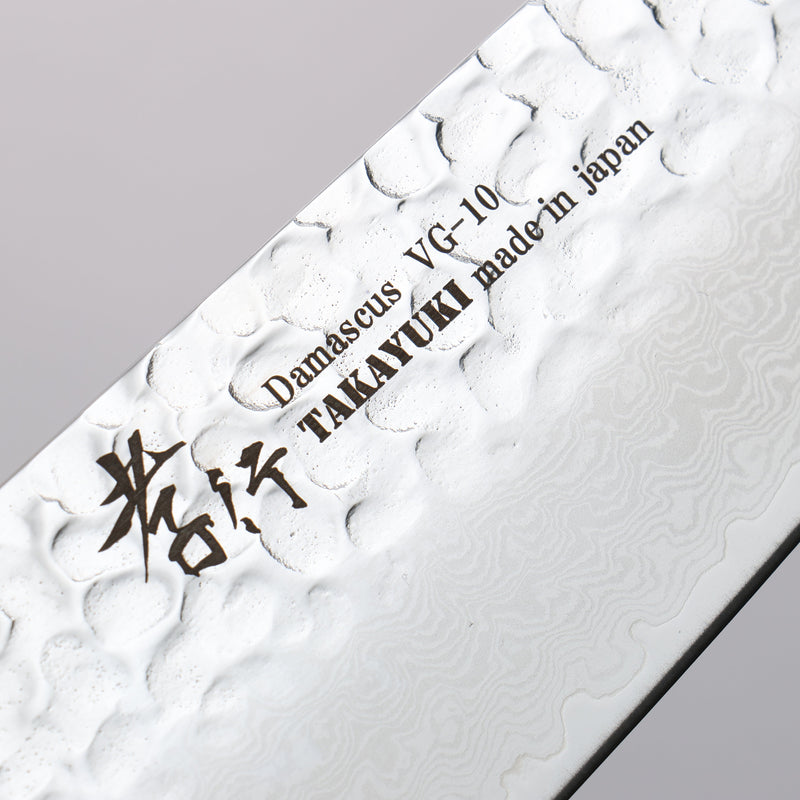 Damascus VG-10
TAKAYUKI made in japan
孝行